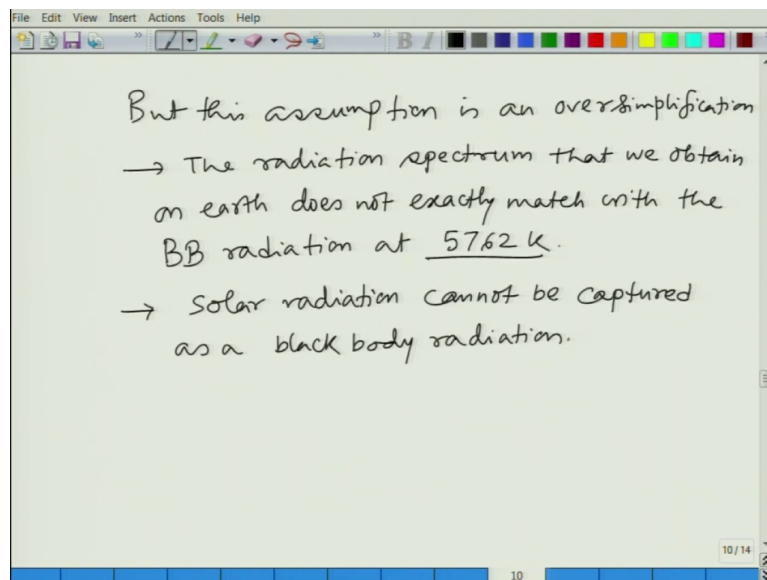 File Edit View Insert Actions Tools Help
» » B I
But this assumption is an oversimplification
→ The radiation spectrum that we obtain
on earth does not exactly match with the
BB radiation at 5762 K.
→ Solar radiation cannot be captured
as a black body radiation.
10 / 14
10